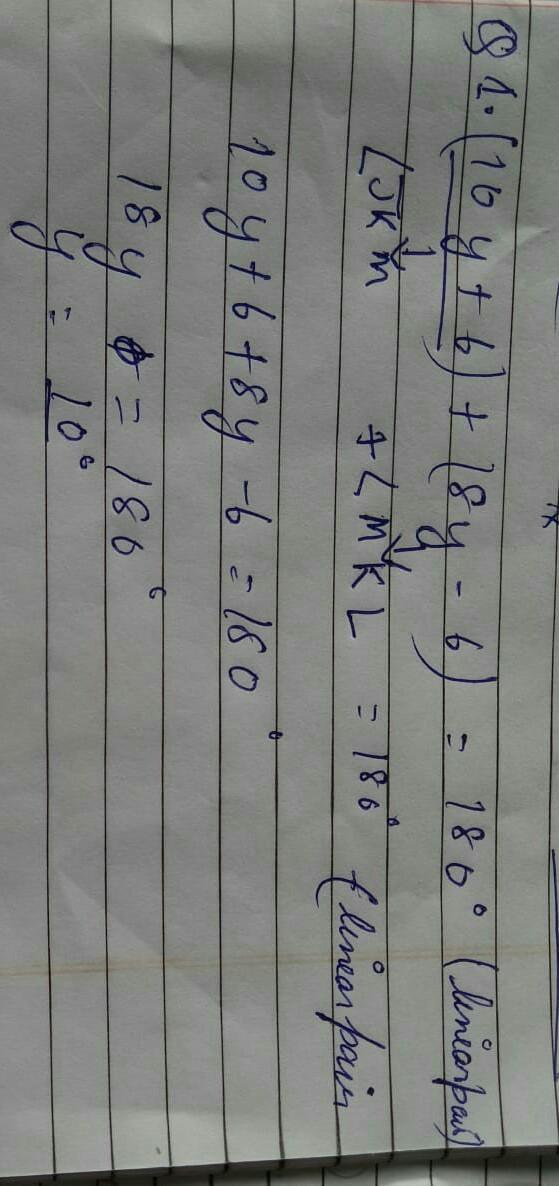 Q 1. (10y + 6) + (8y - 6) = 180° (linear pair)
∠JKM + ∠MKL = 180° (linear pair
10y + 6 + 8y - 6 = 180°
18y = 180°
y = 10°